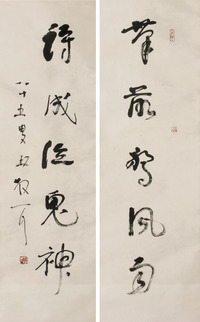 筆落驚風雨
詩成泣鬼神
八十五叟林散耳